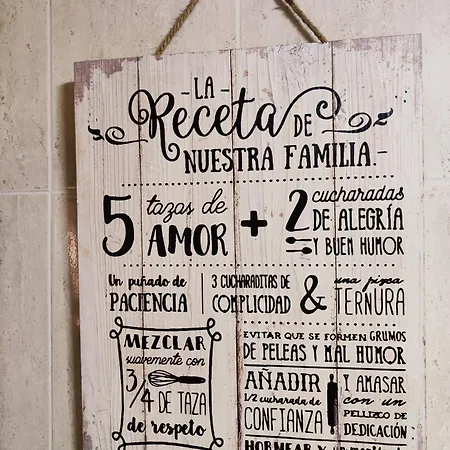 -LA-
Receta DE
NUESTRA FAMILIA.-
5 tazas de AMOR + 2 cucharadas DE ALEGRÍA Y BUEN HUMOR
Un puñado de PACIENCIA
3 CUCHARADITAS DE COMPLICIDAD
& una pizca TERNURA
MEZCLAR
suavemente con
3/4 DE TAZA
de respeto
EVITAR QUE SE FORMEN GRUMOS
DE PELEAS Y MAL HUMOR
AÑADIR
1/2 cucharada de
CONFIANZA
Y AMASAR
con un
PELLIZCO DE
DEDICACIÓN
HORNEAR Y un